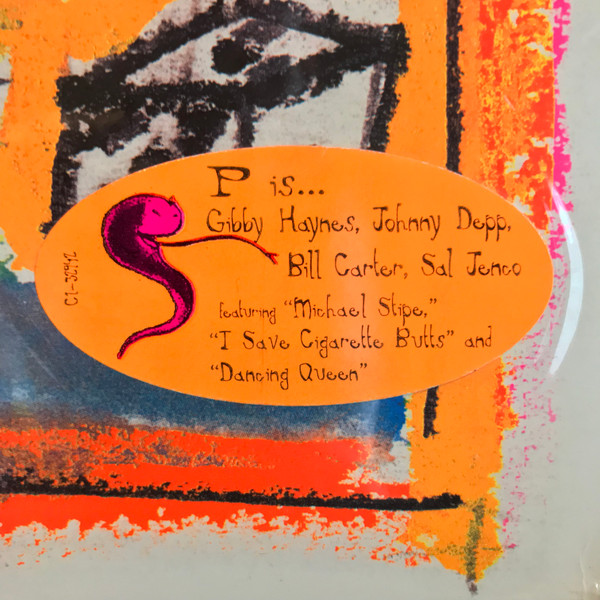 P is...
Gibby Haynes, Johnny Depp,
Bill Carter, Sal Jenco
featuring "Michael Stipe,"
"I Save Cigarette Butts" and
"Dancing Queen"
C1-32942